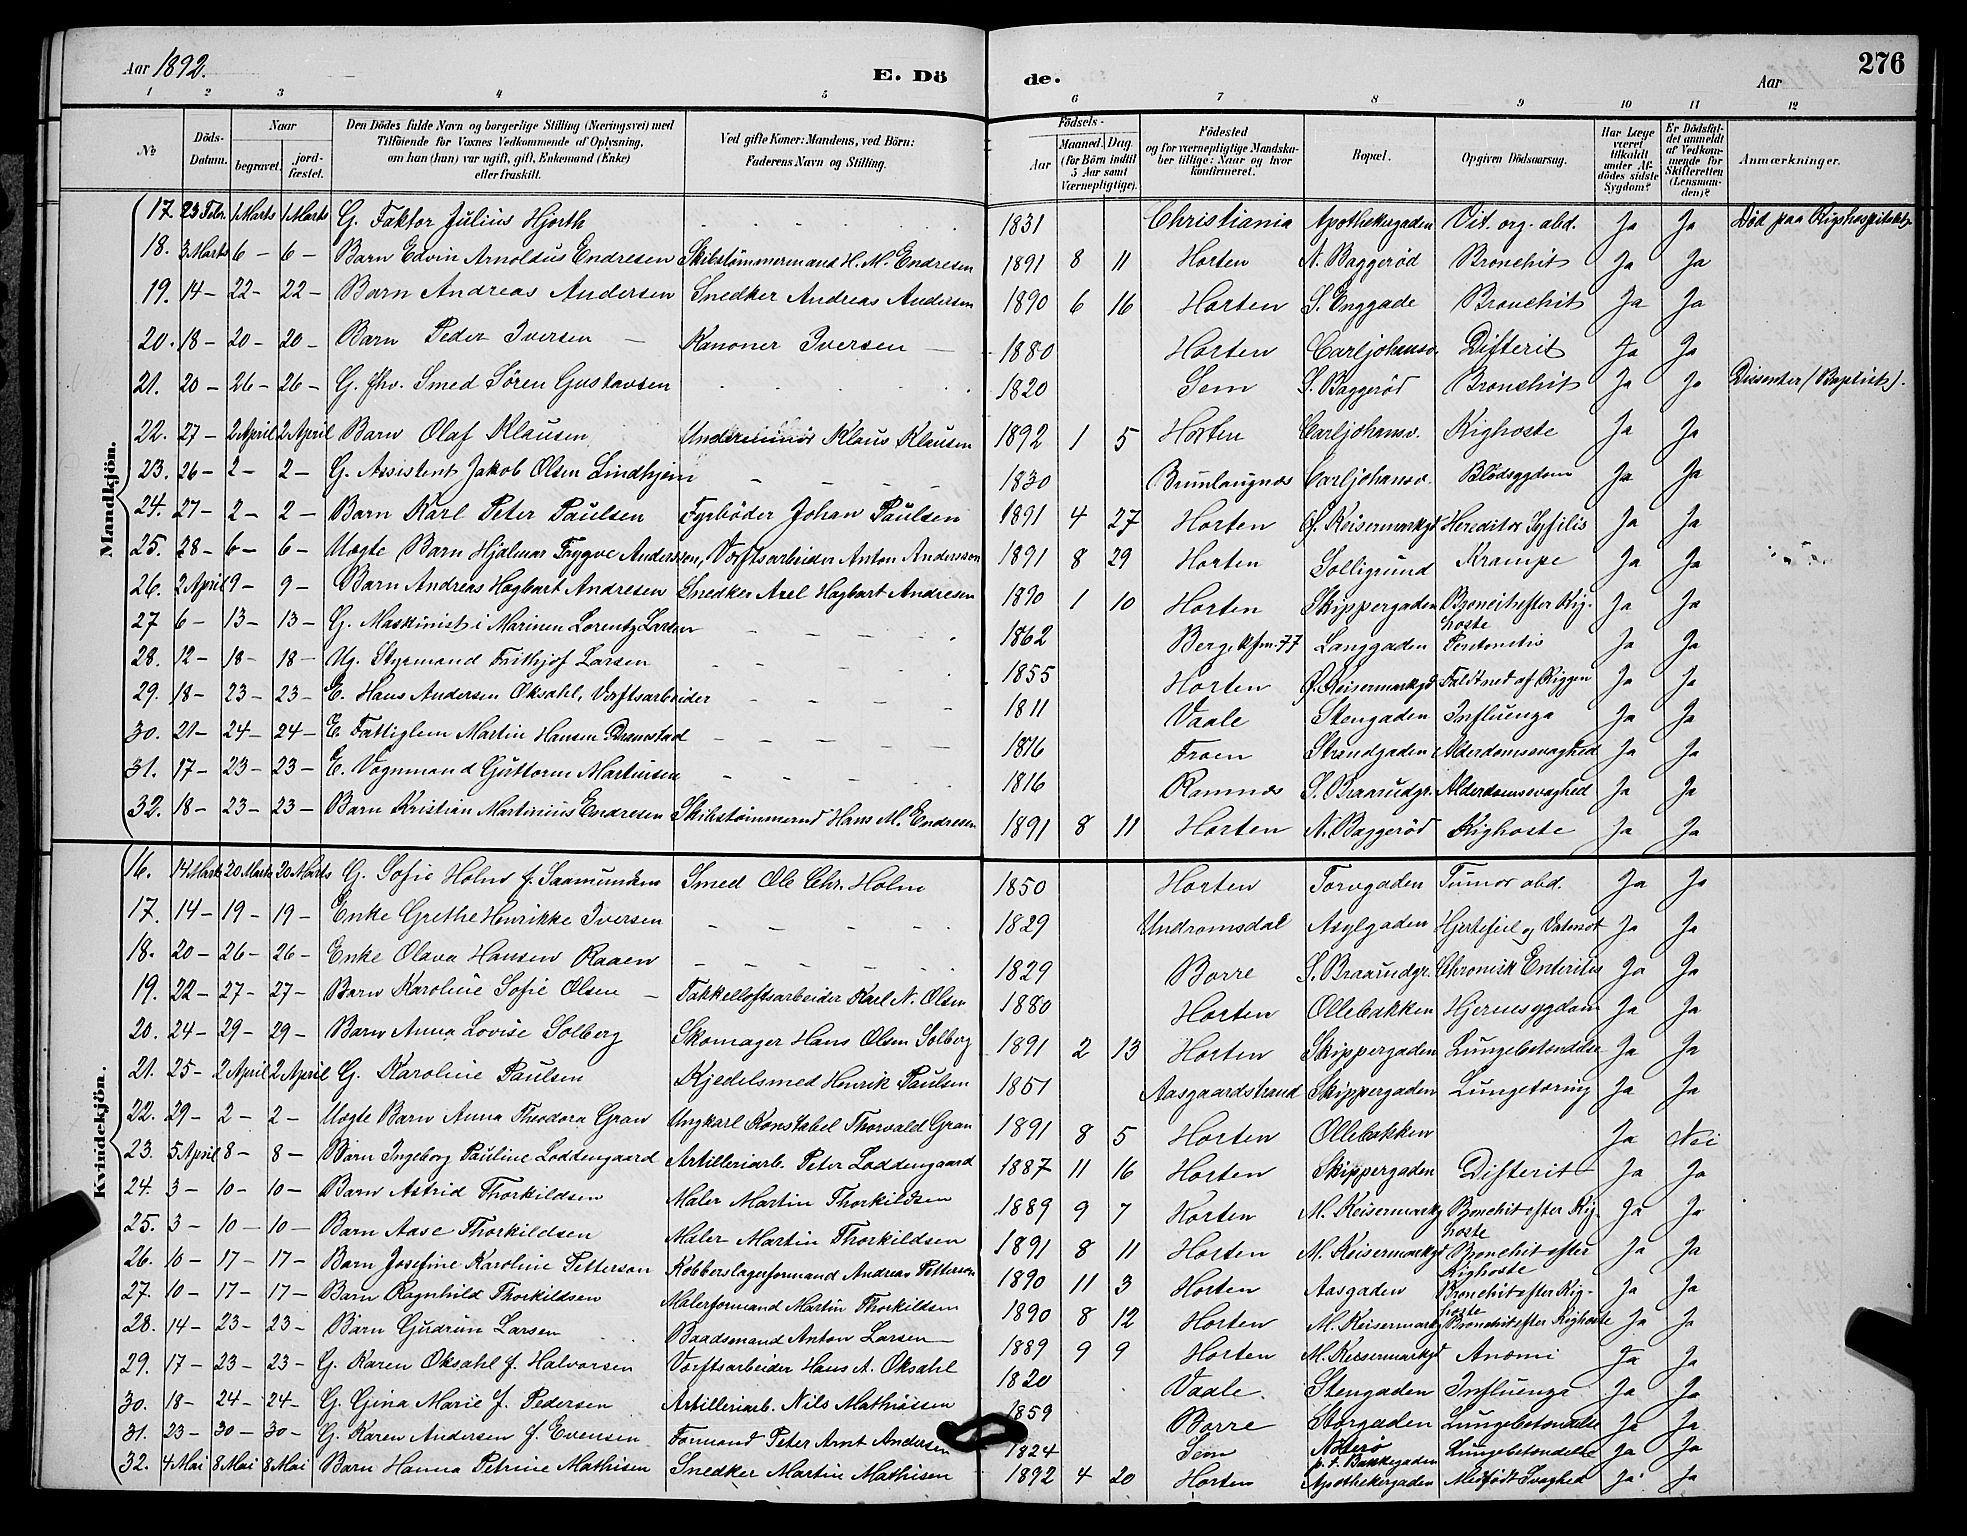 Aar 1892.
E. Dö de.
Aar
276
1 2 3 4 5 6 7 8 9 10 11 12
No
Döds-Datum.
Naar
begravet.
jord-fæstet.
Den Dödes fulde Navn og borgerlige Stilling (Næringsvei) med Tilföiende for Voxnes Vedkommende af Oplysning, om han (hun) var ugift, gift, Enkemand (Enke) eller fraskilt.
Ved gifte Koner: Mandens, ved Börn: Faderens Navn og Stilling.
Födsels-
Aar
Maaned. Dag.
(for Börn indtil 5 Aar samt Værnepligtige).
Födested og for værnepligtige Mandskaber tillige: Naar og hvor konfirmeret.
Bopæl.
Opgiven Dödsaarsag.
Har Læge været tilkaldt under Afdödes sidste Sygdom?
Er Dödsfaldet anmeldt af Vedkommende for Skifteretten (Lensmanden)?
Anmærkninger.
Mandkjön.
17. 23 Febr. 1 Marts 1 Marts G. Faktor Julius Hjorth 1831 Christiania Apothekergaden Vit. org. abd. Ja Ja Död paa Rigshospitalet
18. 3 Marts 6 – 6 – Barn Edvin Arnoldus Endresen Skibstömmermand H. M. Endresen 1891 8 11 Horten N. Baggeröd Bronchit Ja Ja
19. 14 – 22 – 22 – Barn Andreas Andersen Snedker Andreas Andersen 1890 6 16 Horten S. Enggade Bronchit Ja Ja
20. 18 – 20 – 20 – Barn Peder Iversen – Kanoner Iversen – 1880 Horten Carljohansv. Difterit Ja Ja
21. 20 – 26 – 26 – G. fhv. Smed Sören Gustavsen 1820 Sem S. Baggeröd Bronchit Ja Ja Dissenter (Baptist).
22. 27 – 2 April 2 April Barn Olaf Klausen Klaus Klausen 1892 1 5 Horten Carljohansv. Kighoste Ja Ja
23. 26 – 2 – 2 – G. Assistent Jakob Olsen Lindhjem 1830 Brunlaugnæs Carljohansv. Blodsygdom Ja Ja
24. 27 – 2 – 2 – Barn Karl Peter Paulsen Fyrböder Johan Paulsen 1891 4 27 Horten Ö. Keisermarkgd Hereditær Syfilis Ja Ja
25. 28 – 6 – 6 – Uægte Barn Hjalmar Trygve Andersson, Værftsarbeider Anton Andersson 1891 8 29 Horten Solligrund Krampe Ja Ja
26. 2 April 9 – 9 – Barn Andreas Hagbart Andresen Snedker Axel Hagbart Andresen 1890 1 10 Horten Skippergaden Bronchit efter Kighoste Ja Ja
27 6 – 13 – 13 – G. Maskinist i Marinen Lorentz Larsen 1862 Berg, kfm. 77 Langgaden Peritonitis Ja Ja
28. 12 – 18 – 18 – Ug. Styrmand Frithjof Larsen 1855 Horten Ö. Keisermarkgd Faldt ned af Riggen Ja Ja
29. 18 – 23 – 23 – E. Hans Andersen Oksahl, Værftsarbeider 1811 Vaale Stengaden Influenza Ja Ja
30. 21 – 24 – 24 – E. Fattiglem Martin Hansen Bramstad 1816 Froen Strandgaden Alderdomssvaghed Ja Ja
31. 17 – 23 – 23 – E. Vognmand Guttorm Martinsen 1816 Ramnæs S. Braarudgr. Alderdomssvaghed Ja Ja
32. 18 – 23 – 23 – Barn Kristian Martinius Endresen Skibstömmermd Hans M. Endresen 1891 8 11 Horten N. Baggeröd Kighoste Ja Ja
Kvindekjön.
16. 14 Marts 20 Marts 20 Marts G. Sofie Holm f. Saamundsen Smed Ole Chr. Holm 1850 Horten Torvgaden Tumor abd. Ja Ja
17. 14 – 19 – 19 – Enke Grethe Henrikke Iversen 1829 Undromsdal Asylgaden Hjertefeil og Vatersot Ja Ja
18. 20 – 26 – 26 – Enke Olava Hansen Raaen 1829 Borre S. Braarudgr. Chronisk Enteritis Ja Ja
19. 22 – 27 – 27 – Barn Karoline Sofie Olsen – Takkelloftsarbeider Karl N. Olsen 1880 Horten Ollebakken Hjernesygdom Ja Ja
20. 24 – 29 – 29 – Barn Anna Lovise Solberg Skomager Hans Olsen Solberg 1891 2 13 Horten Skippergaden Lungebetændelse Ja Ja
21. 25 – 2 April 2 April G. Karoline Paulsen Kjedelsmed Henrik Paulsen 1851 Aasgaardstrand Skippergaden Lungetæring Ja Ja
22. 29 – 2 – 2 – Uægte Barn Anna Theodora Gran Ungkarl Konstabel Thorvald Gran 1891 8 5 Horten Ollebakken Ja Nei
23. 5 April 8 – 8 – Barn Ingeborg Pauline Loddengaard Artilleriarb. Peter Loddengaard 1887 11 16 Horten Skippergaden Difterit Ja Ja
24. 3 – 10 – 10 – Barn Astrid Thorkildsen Maler Martin Thorkildsen 1889 9 7 Horten M. Keisermarkg Bronchit efter Kighoste Ja Ja
25. 3 – 10 – 10 – Barn Aase Thorkildsen Maler Martin Thorkildsen 1891 8 11 Horten M. Keisermarkgd Bronchit efter Kighoste Ja Ja
26. 10 – 17 – 17 – Barn Josefine Karoline Petterson Kobberslagerformand Andreas Petterson 1890 11 3 Horten Aasgaden Bronchit efter Kighoste Ja Ja
27. 10 – 17 – 17 – Barn Ragnhild Thorkildsen Malerformand Martin Thorkildsen 1890 8 12 Horten M. Keisermarkg Bronchit efter Kighoste Ja Ja
28. 14 – 23 – 23 – Barn Gudrun Larsen Baadsmand Anton Larsen 1889 9 9 Horten M. Keisermarkgd Anæmi Ja Ja
29. 17 – 23 – 23 – G. Karen Oksahl f. Halvorsen Værftsarbeider Hans A. Oksahl 1820 Vaale. Stengaden Influenza Ja Ja
30. 18 – 24 – 24 – G. Gina Marie f. Pedersen Artilleriarb. Nils Mathiassen 1859 Borre Storgaden Lungebetændelse Ja Ja
31. 23 – 30 – 30 – G. Karen Andersen f. Evensen Formand Peter Arnt Andersen 1824 Sem Nöterö p.t. Bakkegaden Lungebetændelse Ja Ja
32. 4 Mai 8 Mai 8 Mai Barn Hanna Petrine Mathisen Snedker Martin Mathisen 1892 4 20 Horten Apothekergaden Medfödt Svaghed Ja Ja